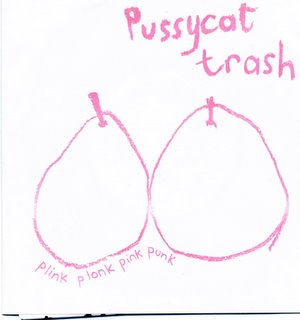 Pussycat
trash
plink plonk pink punk